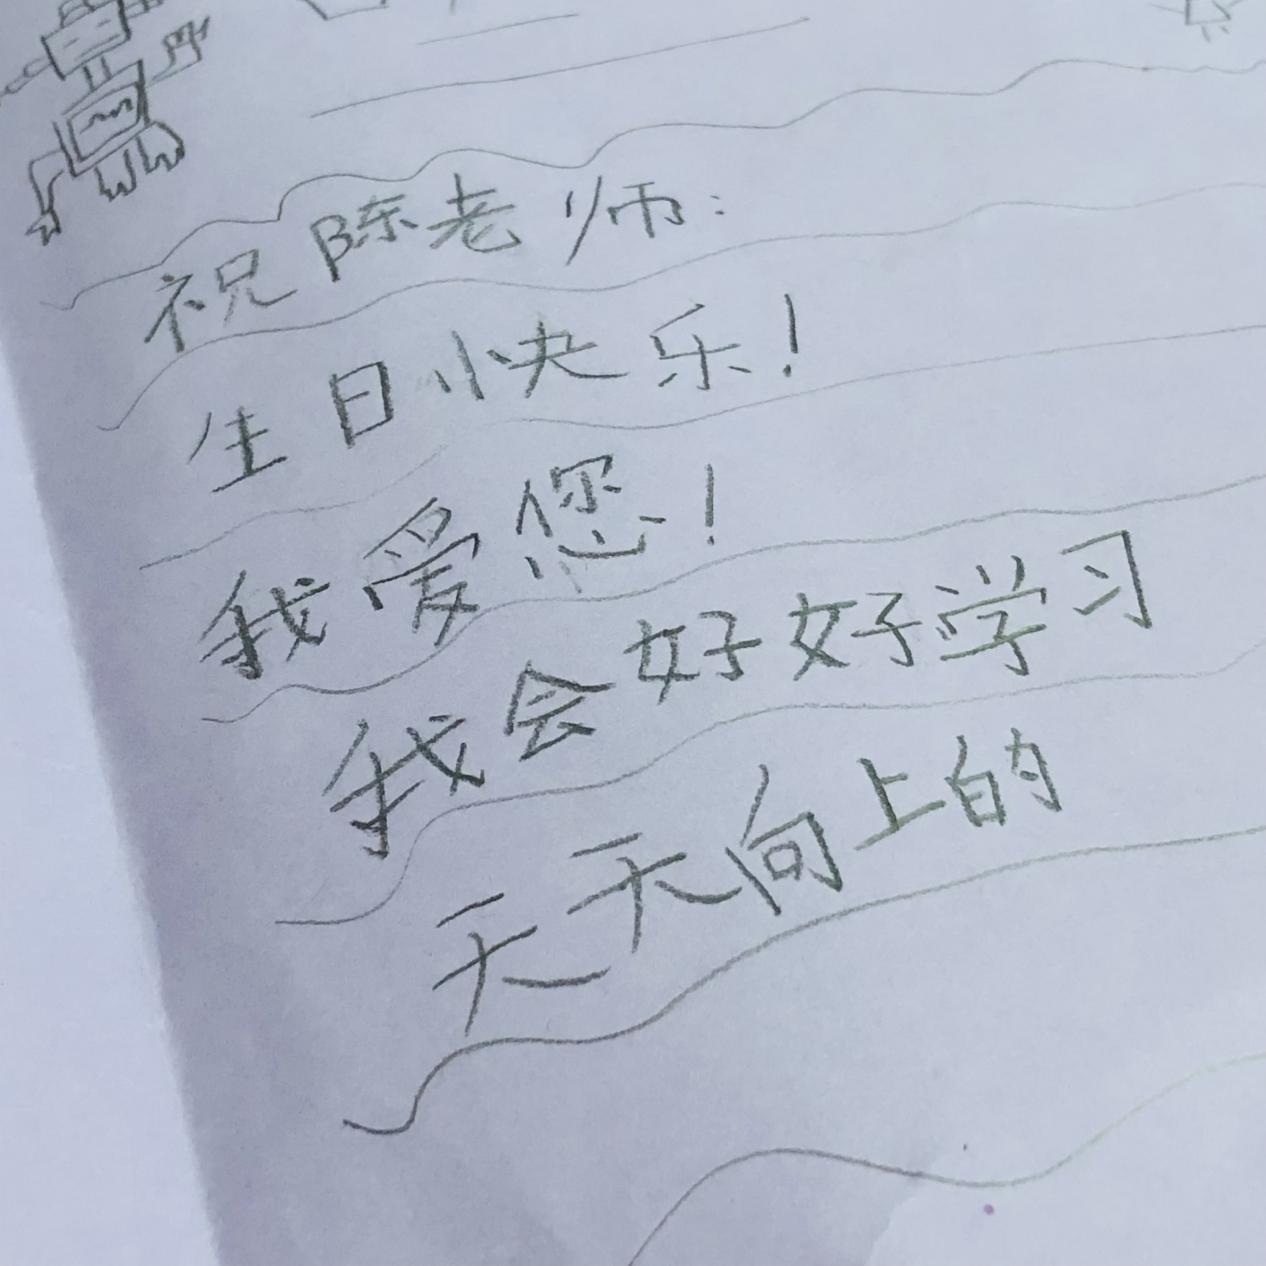 祝陈老师:
生日快乐!
我爱您!
我会好好学习
天天向上的